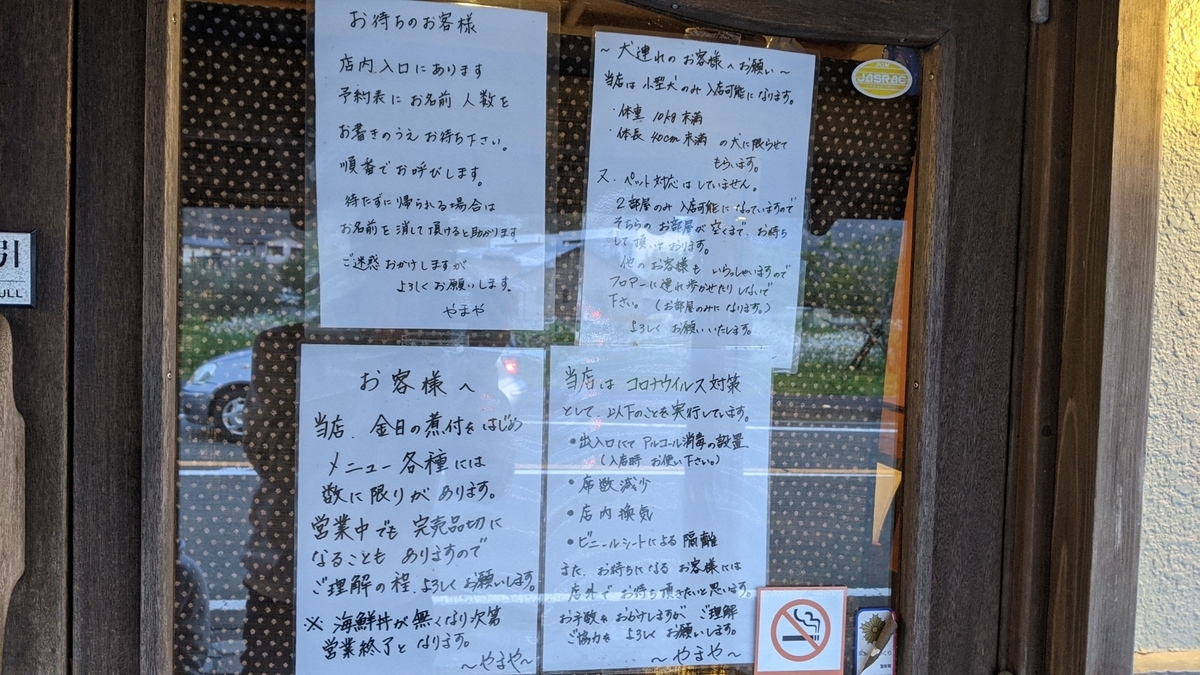 お待ちのお客様
店内入口にあります
予約表にお名前 人数を
お書きのうえお待ち下さい。
順番でお呼びします。
待たずに帰られる場合は
お名前を消して頂けると助かります
ご迷惑おかけしますが
よろしくお願いします。
やまや
～犬連れのお客様へお願い～
当店は小型犬のみ入店可能になります。
・体重 10kg未満
・体長 40cm未満 の犬に限らせて
もらいます。
又、ペット対応はしていません。
2部屋のみ入店可能になっていますので
そちらのお部屋が空くまで、お待ち
して頂いております。
他のお客様もいらっしゃいますので
フロアーに連れ歩かせたりしないで
下さい。(お部屋のみになります。)
よろしくお願いいたします。
JASRAC
引
PULL
お客様へ
当店、金目の煮付をはじめ
メニュー各種には
数に限りがあります。
営業中でも完売品切に
なることもありますので
ご理解の程、よろしくお願いします。
※海鮮丼が無くなり次第
営業終了となります。
～やまや～
当店はコロナウイルス対策
として、以下のことを実行しています。
•出入口にてアルコール消毒の設置
(入店時お使い下さい。)
•席数減少
•店内換気
•ビニールシートによる隔離
また、お待ちになるお客様には
店外でお待ち頂きたいと思います。
お手数をおかけしますがご理解
ご協力をよろしくお願いします。
～やまや～